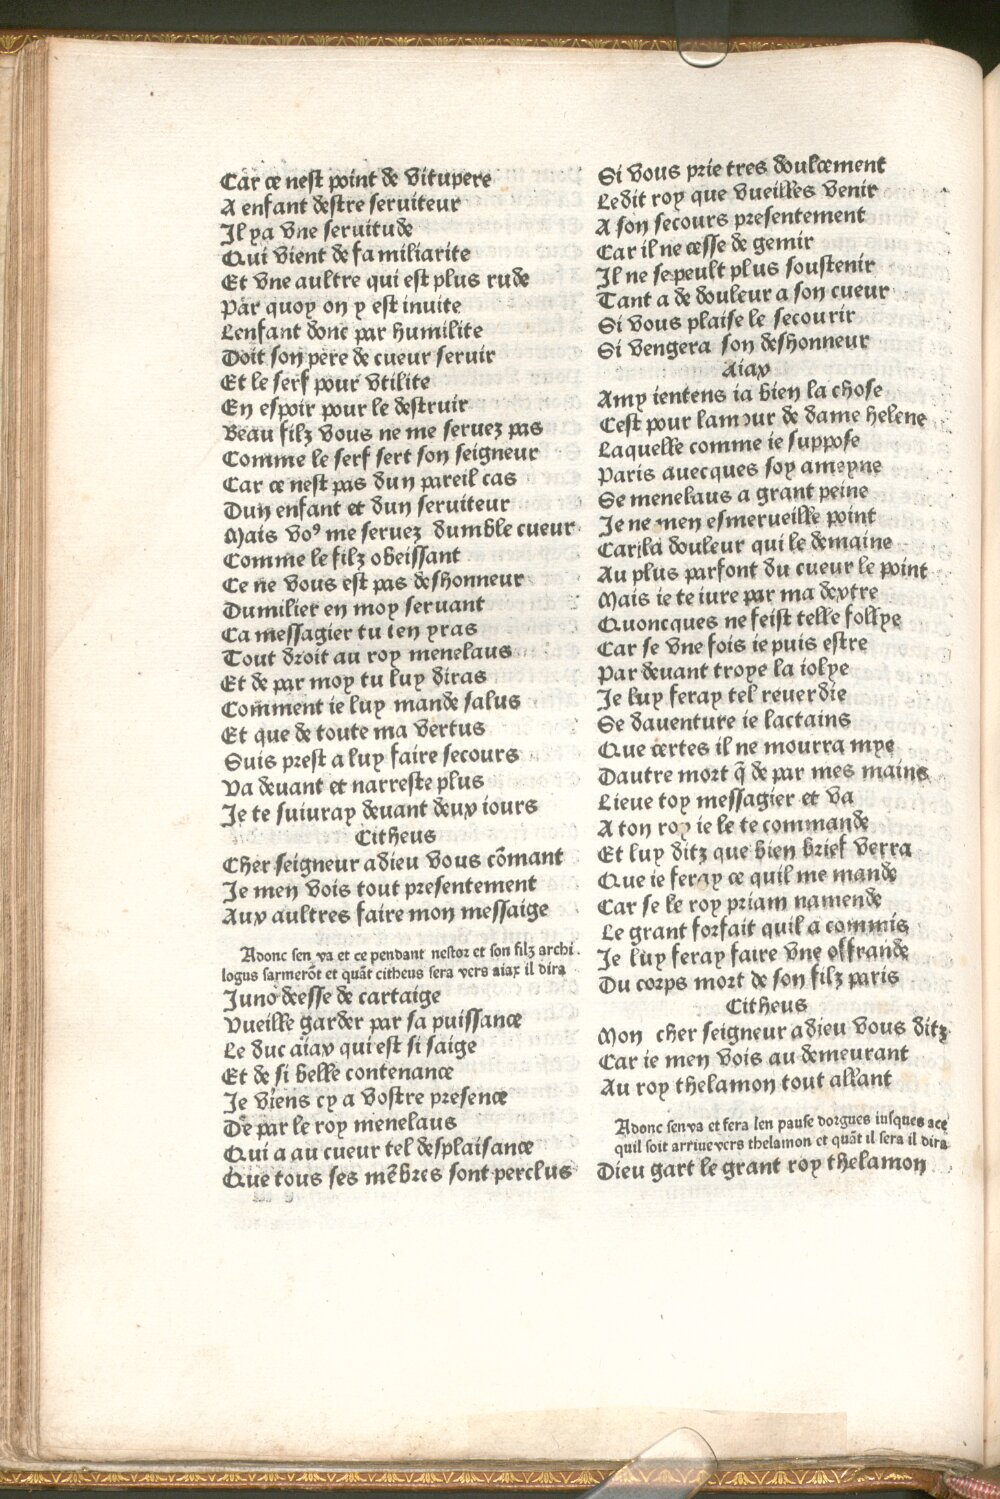 Car ce nest point de vitupere
A enfant destre seruiteur
Il ya vne seruitude
Qui vient de familiarite
Et vne aultre qui est plus rude
Par quoy on y est inuite
Lenfant donc par humilite
Doit son pere de cueur seruir
Et le serf pour vtilite
En espoir pour le destruir
Beau filz vous ne me seruez pas
Comme le serf sert son seigneur
Car ce nest pas dun pareil cas
Dun enfant et dun seruiteur
Mais voꝰ me seruez dumble cueur
Comme le filz obeissant
Ce ne vous est pas deshonneur
Dumilier en moy seruant
Ca messagier tu ten yras
Tout droit au roy menelaus
Et de par moy tu luy diras
Comment ie luy mande salus
Et que de toute ma vertus
Suis prest a luy faire secours
Va deuant et narreste plus
Je te suiuray deuant deux iours
Citheus
Cher seigneur adieu vous cõmant
Je men vois tout presentement
Aux aultres faire mon messaige
Adonc sen va et ce pendant nestor et son filz archi
logus sarmerõt et quãt citheus sera vers aiax il dira
Juno deesse de cartaige
Vueille garder par sa puissance
Le duc aiax qui est si saige
Et de si belle contenance
Je viens cy a vostre presence
De par le roy menelaus
Qui a au cueur tel desplaisance
Que tous ses mẽbres sont perclus
Si vous prie tres doulcement
Ledit roy que vueilles venir
A son secours presentement
Car il ne cesse de gemir
Il ne se peult plus soustenir
Tant a de douleur a son cueur
Si vous plaise le secourir
Si vengera son deshonneur
Aiax
Amy ientens ia bien la chose
Cest pour lamour de dame helene
Laquelle comme ie suppose
Paris auecques soy ameyne
Se menelaus a grant peine
Je ne men esmerueille point
Car la douleur qui le demaine
Au plus parfont du cueur le point
Mais ie te iure par ma dextre
Quoncques ne feist telle follye
Car se vne fois ie puis estre
Par deuant troye la iolye
Je luy feray tel reuerdie
Se dauenture ie lactains
Que certes il ne mourra mye
Dautre mort q̃ de par mes mains
Lieue toy messagier et va
A ton roy ie le te commande
Et luy ditz que bien brief verra
Que ie feray ce quil me mande
Car se le roy priam namende
Le grant forfait quil a commis
Je luy feray faire vne offrande
Du corps mort de son filz paris
Citheus
Mon cher seigneur adieu vous ditz
Car ie men vois au demeurant
Au roy thelamon tout allant
Adonc sen va et fera len pause dorgues iusques a ce
quil soit arriue vers thelamon et quãt il sera il dira
Dieu gart le grant roy thelamon